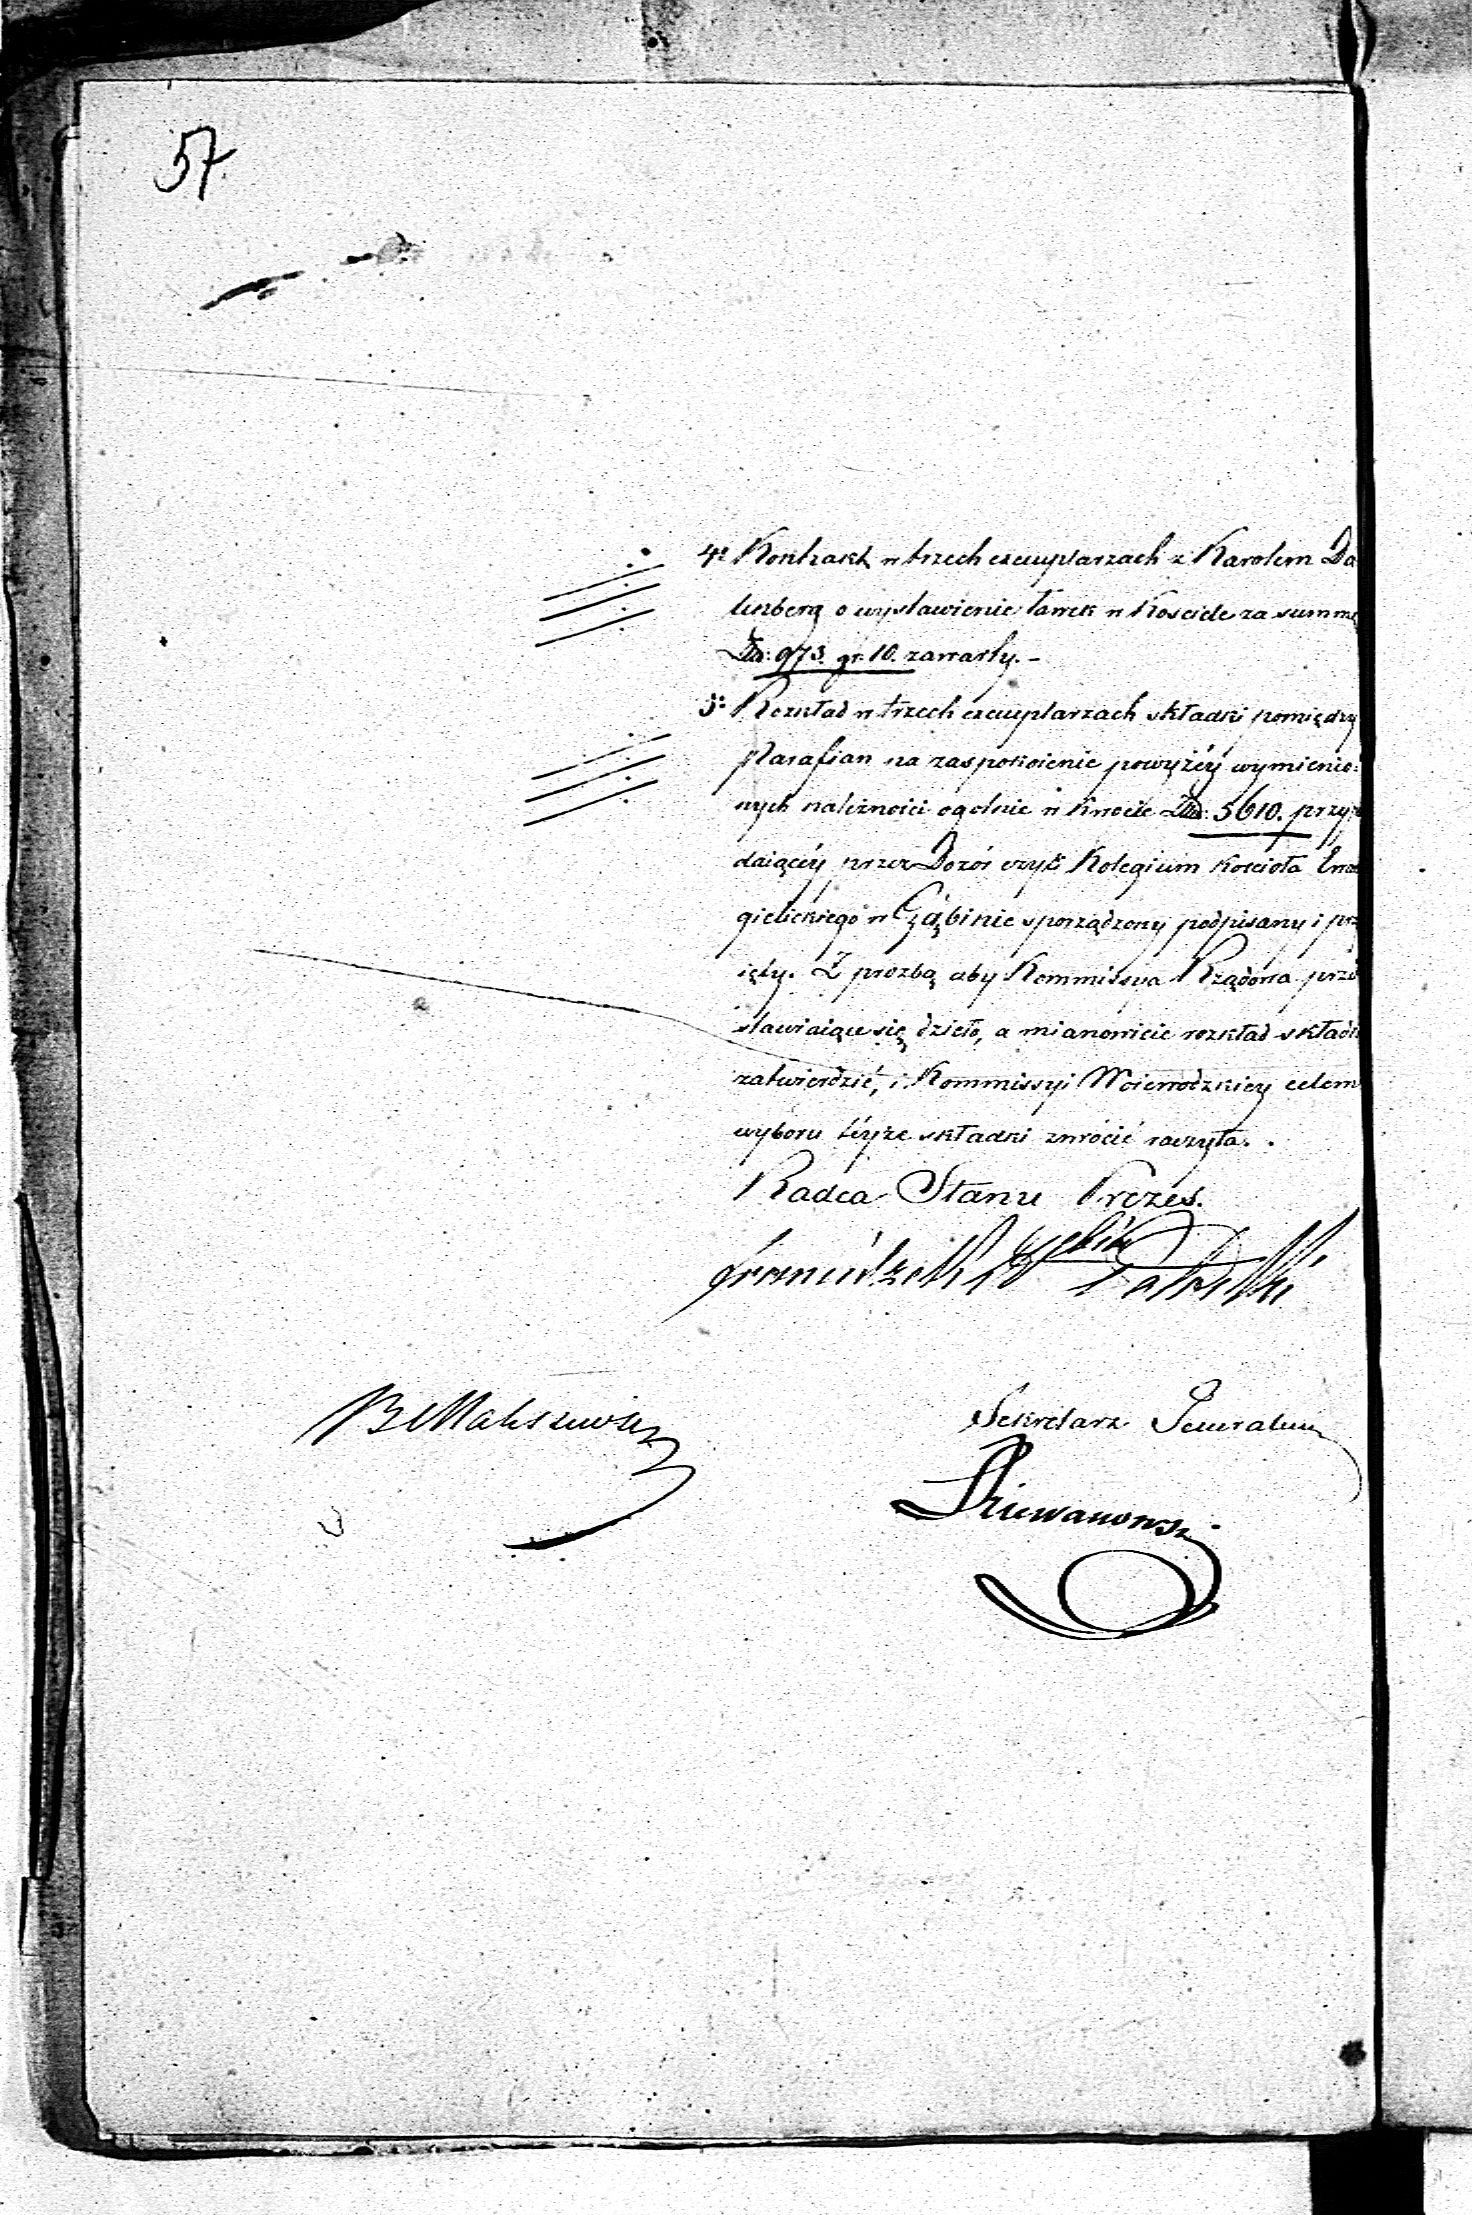 57
4o Kontrakt w trzech exemplarzach z Karolem Da
lenberg o wystawienie ławek w Kosciele za summę
Złp: 973. gr. 10. zawarty. –
5o Rozkład w trzech exemplarzach składki pomiędzy
Parafian na zaspokoienie powyżéy wymienio:
nych należności ogolnie w kwocie Złp: 5610. przy
daiącéy przez Dozór czyli Kolegium kościoła Ewa
gielickiego w Gąbinie sporządzony podpisany i prz
ięty. Z prozbą aby Kommissya Rządowa przed
stawiaiące się dzieło, a mianowicie rozkład składk
zatwierdzić, i Kommissyi Woiewodzkiey celem
wyboru téyże składki zwrócić raczyła. .
Radca Stanu Prezes.
Sekretarz Generalny